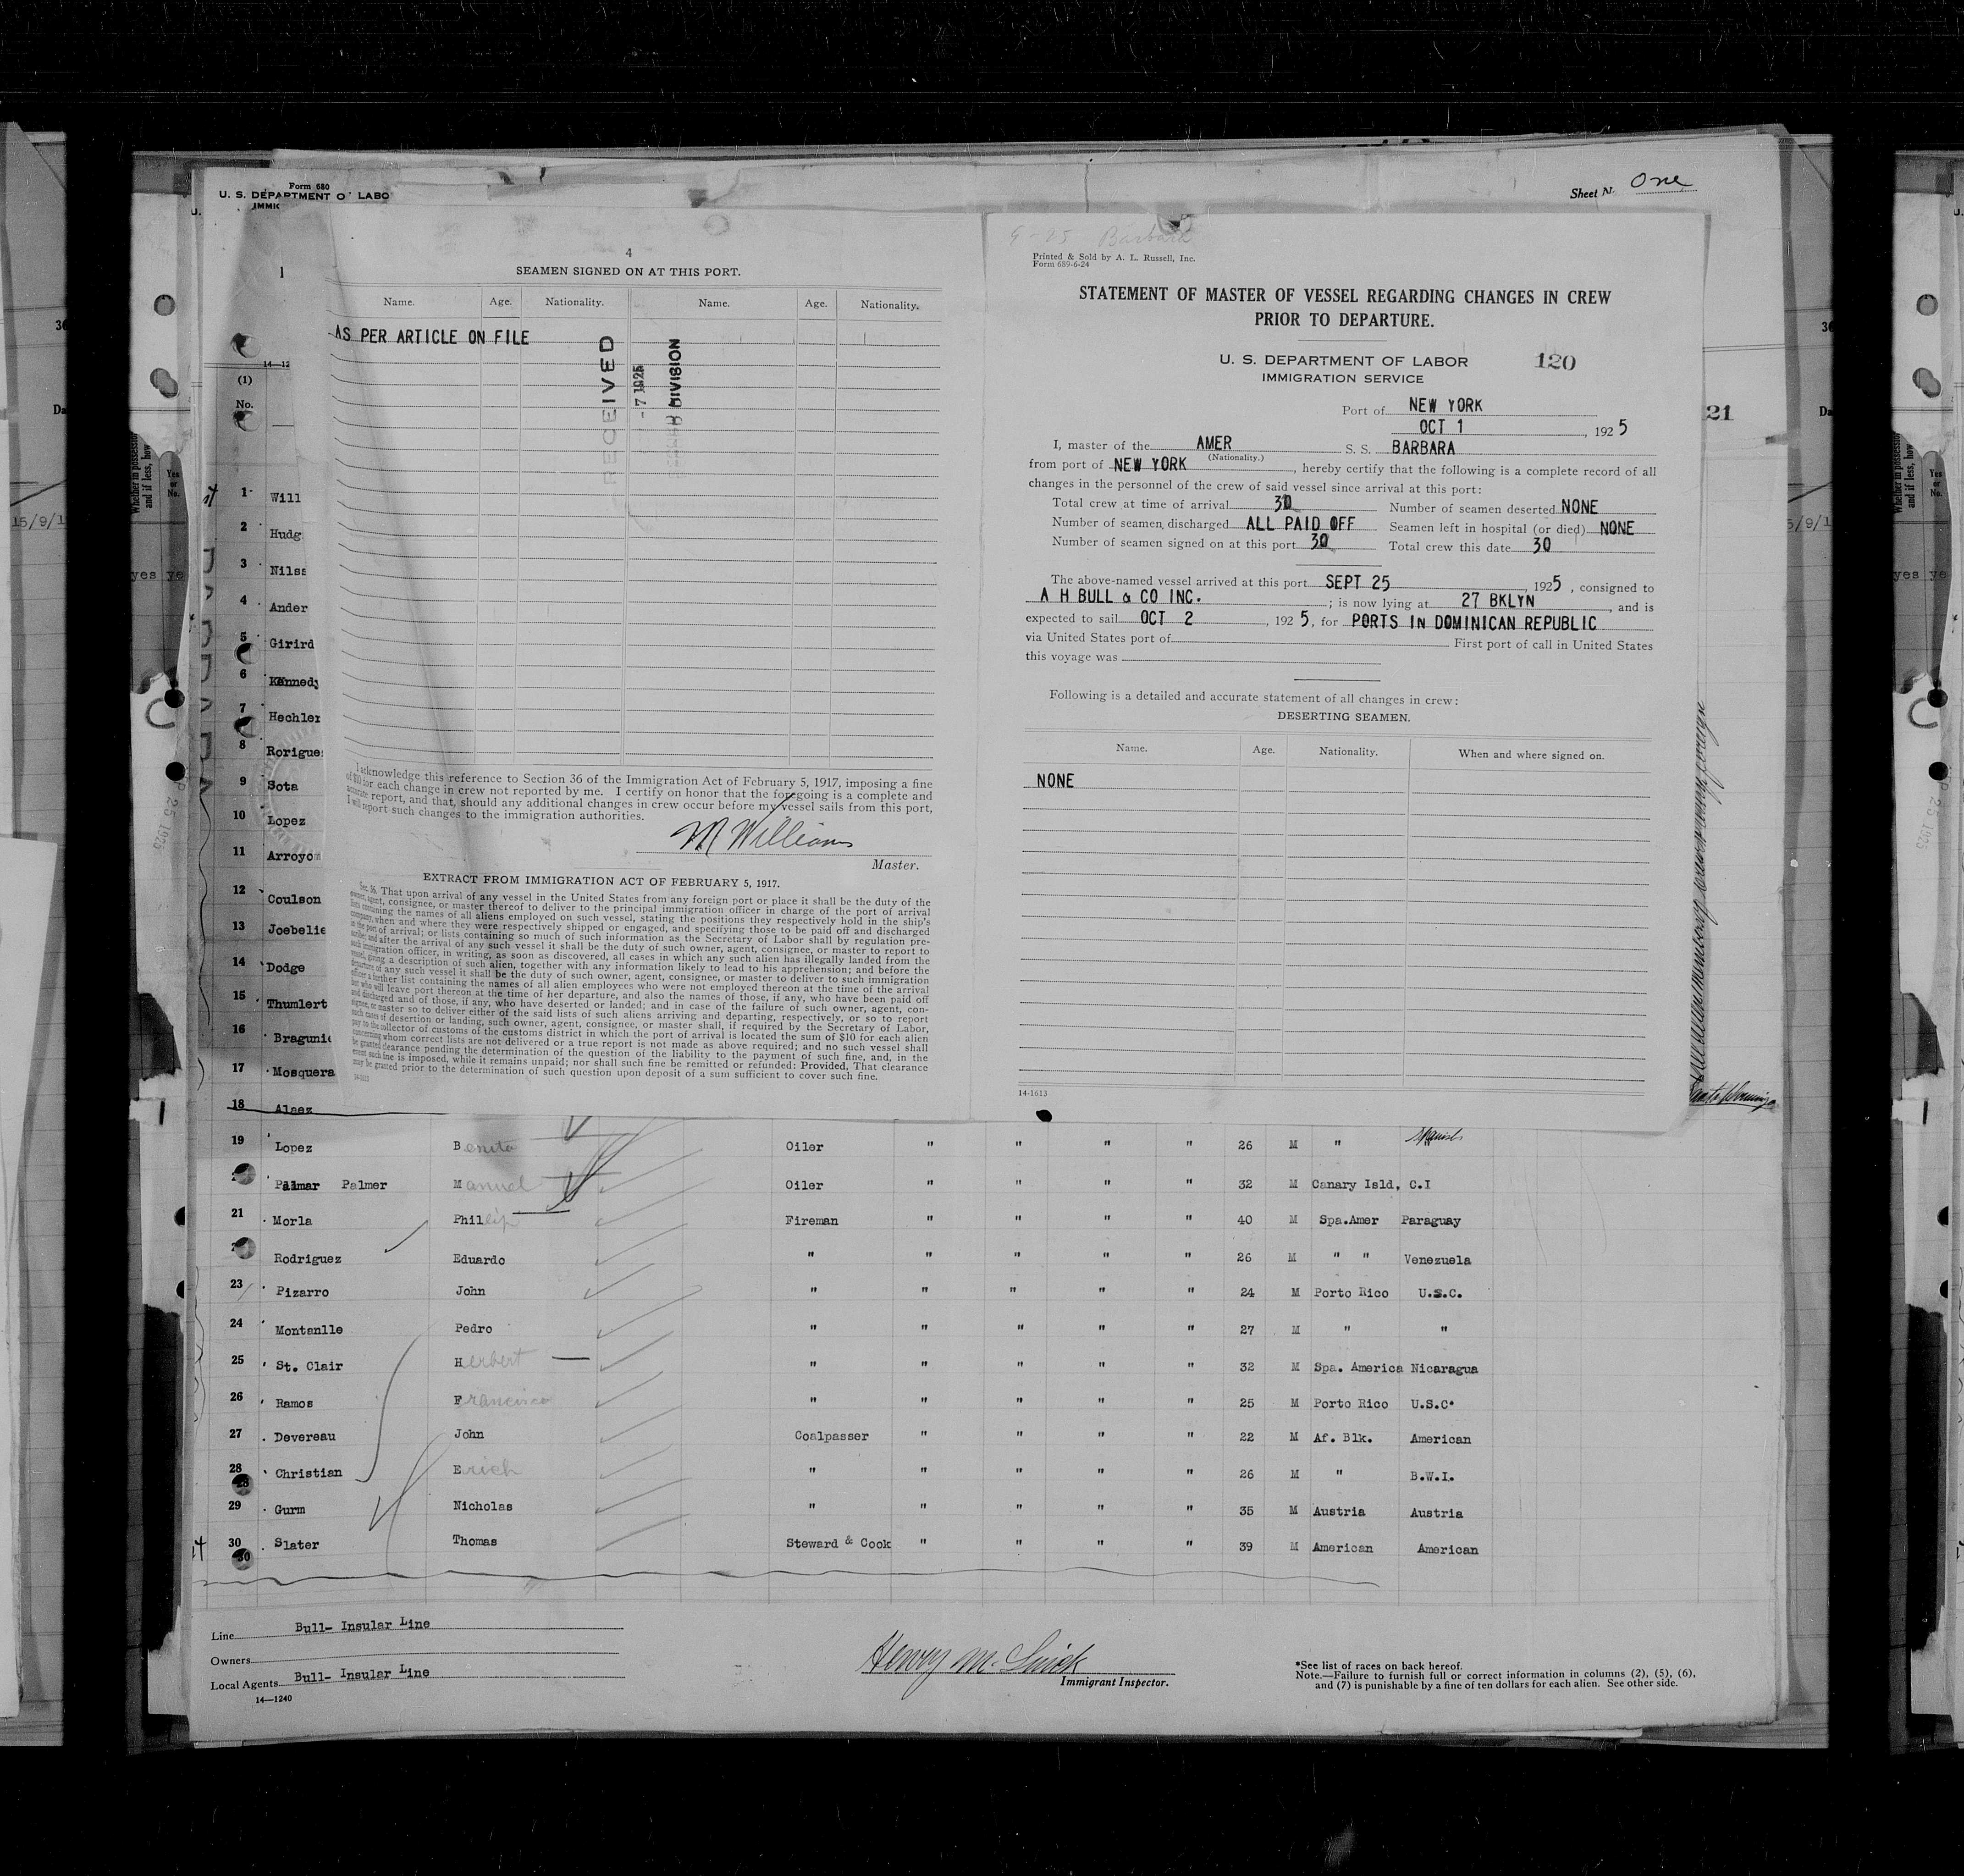 Form 680
U. S. DEPARTMENT O LABO
IMMIC
Sheet N. One
4
SEAMEN SIGNED ON AT THIS PORT.
Name. Age. Nationality. Name. Age. Nationality.
AS PER ARTICLE ON FILE
RECEIVED
- 7 1925
DIVISION
I acknowledge this reference to Section 36 of the Immigration Act of February 5, 1917, imposing a fine
of $10 for each change in crew not reported by me. I certify on honor that the foregoing is a complete and
accurate report, and that, should any additional changes in crew occur before my vessel sails from this port,
I will report such changes to the immigration authorities.
M Williams
Master.
EXTRACT FROM IMMIGRATION ACT OF FEBRUARY 5, 1917.
Sec. 36. That upon arrival of any vessel in the United States from any foreign port or place it shall be the duty of the
owner, agent, consignee, or master thereof to deliver to the principal immigration officer in charge of the port of arrival
lists containing the names of all aliens employed on such vessel, stating the positions they respectively hold in the ship's
company, when and where they were respectively shipped or engaged, and specifying those to be paid off and discharged
in the port of arrival; or lists containing so much of such information as the Secretary of Labor shall by regulation pre-
scribe; and after the arrival of any such vessel it shall be the duty of such owner, agent, consignee, or master to report to
such immigration officer, in writing, as soon as discovered, all cases in which any such alien has illegally landed from the
vessel, giving a description of such alien, together with any information likely to lead to his apprehension; and before the
departure of any such vessel it shall be the duty of such owner, agent, consignee, or master to deliver to such immigration
officer a further list containing the names of all alien employees who were not employed thereon at the time of the arrival
but who will leave port thereon at the time of her departure, and also the names of those, if any, who have been paid off
and discharged and of those, if any, who have deserted or landed; and in case of the failure of such owner, agent, con-
signee, or master so to deliver either of the said lists of such aliens arriving and departing, respectively, or so to report
such cases of desertion or landing, such owner, agent, consignee, or master shall, if required by the Secretary of Labor,
pay to the collector of customs of the customs district in which the port of arrival is located the sum of $10 for each alien
concerning whom correct lists are not delivered or a true report is not made as above required; and no such vessel shall
be granted clearance pending the determination of the question of the liability to the payment of such fine, and, in the
event such fine is imposed, while it remains unpaid; nor shall such fine be remitted or refunded: Provided, That clearance
may be granted prior to the determination of such question upon deposit of a sum sufficient to cover such fine.
14-1613
9-25 Barbara
Printed & Sold by A. L. Russell, Inc.
Form 689-6-24
STATEMENT OF MASTER OF VESSEL REGARDING CHANGES IN CREW
PRIOR TO DEPARTURE.
U. S. DEPARTMENT OF LABOR 120
IMMIGRATION SERVICE
Port of NEW YORK
OCT 1, 1925
I, master of the AMER S. S. BARBARA
(Nationality.)
from port of NEW YORK, hereby certify that the following is a complete record of all
changes in the personnel of the crew of said vessel since arrival at this port:
Total crew at time of arrival 30 Number of seamen deserted NONE
Number of seamen discharged ALL PAID OFF Seamen left in hospital (or died) NONE
Number of seamen signed on at this port 30 Total crew this date 30
The above-named vessel arrived at this port SEPT 25, 1925, consigned to
A H BULL & CO INC. ; is now lying at 27 BKLYN, and is
expected to sail OCT 2, 1925, for PORTS IN DOMINICAN REPUBLIC
via United States port of First port of call in United States
this voyage was
Following is a detailed and accurate statement of all changes in crew:
DESERTING SEAMEN.
Name. Age. Nationality. When and where signed on.
NONE
14-1613
21
(1)
No.
1 Will
2 Hudg
3 Nils
4 Ander
5 Girird
6 Kennedy
7 Hechler
8 Rorigue
9 Sota
10 Lopez
11 Arroyo
12 Coulson
13 Joebelie
14 Dodge
15 Thumlert
16 Braguni
17 Mosquera
18 Alaez
19 Lopez Benito Oiler " " " " 26 M " Spanish
Palmar Palmer Manuel Oiler " " " " 32 M Canary Isld, C.I
21 Morla Philip Fireman " " " " 40 M Spa.Amer Paraguay
Rodriguez Eduardo " " " " " 26 M " " Venezuela
23 Pizarro John " " " " " 24 M Porto Rico U.S.C.
24 Montanlle Pedro " " " " " 27 M " "
25 St. Clair Herbert " " " " " 32 M Spa. America Nicaragua
26 Ramos Francisco " " " " " 25 M Porto Rico U.S.C.
27 Devereau John Coalpasser " " " " 22 M Af. Blk. American
28 Christian Erich " " " " " 26 M " B.W.I.
29 Gurm Nicholas " " " " " 35 M Austria Austria
30 Slater Thomas Steward & Cook " " " " 39 M American American
Line Bull- Insular Line
Owners
Local Agents Bull- Insular Line
14—1240
Henry M.
Immigrant Inspector.
*See list of races on back hereof.
Note.—Failure to furnish full or correct information in columns (2), (5), (6),
and (7) is punishable by a fine of ten dollars for each alien. See other side.